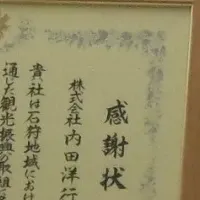 感謝状
株式会社 内田洋行
貴社は石狩地域にお
通した観光振興の取組